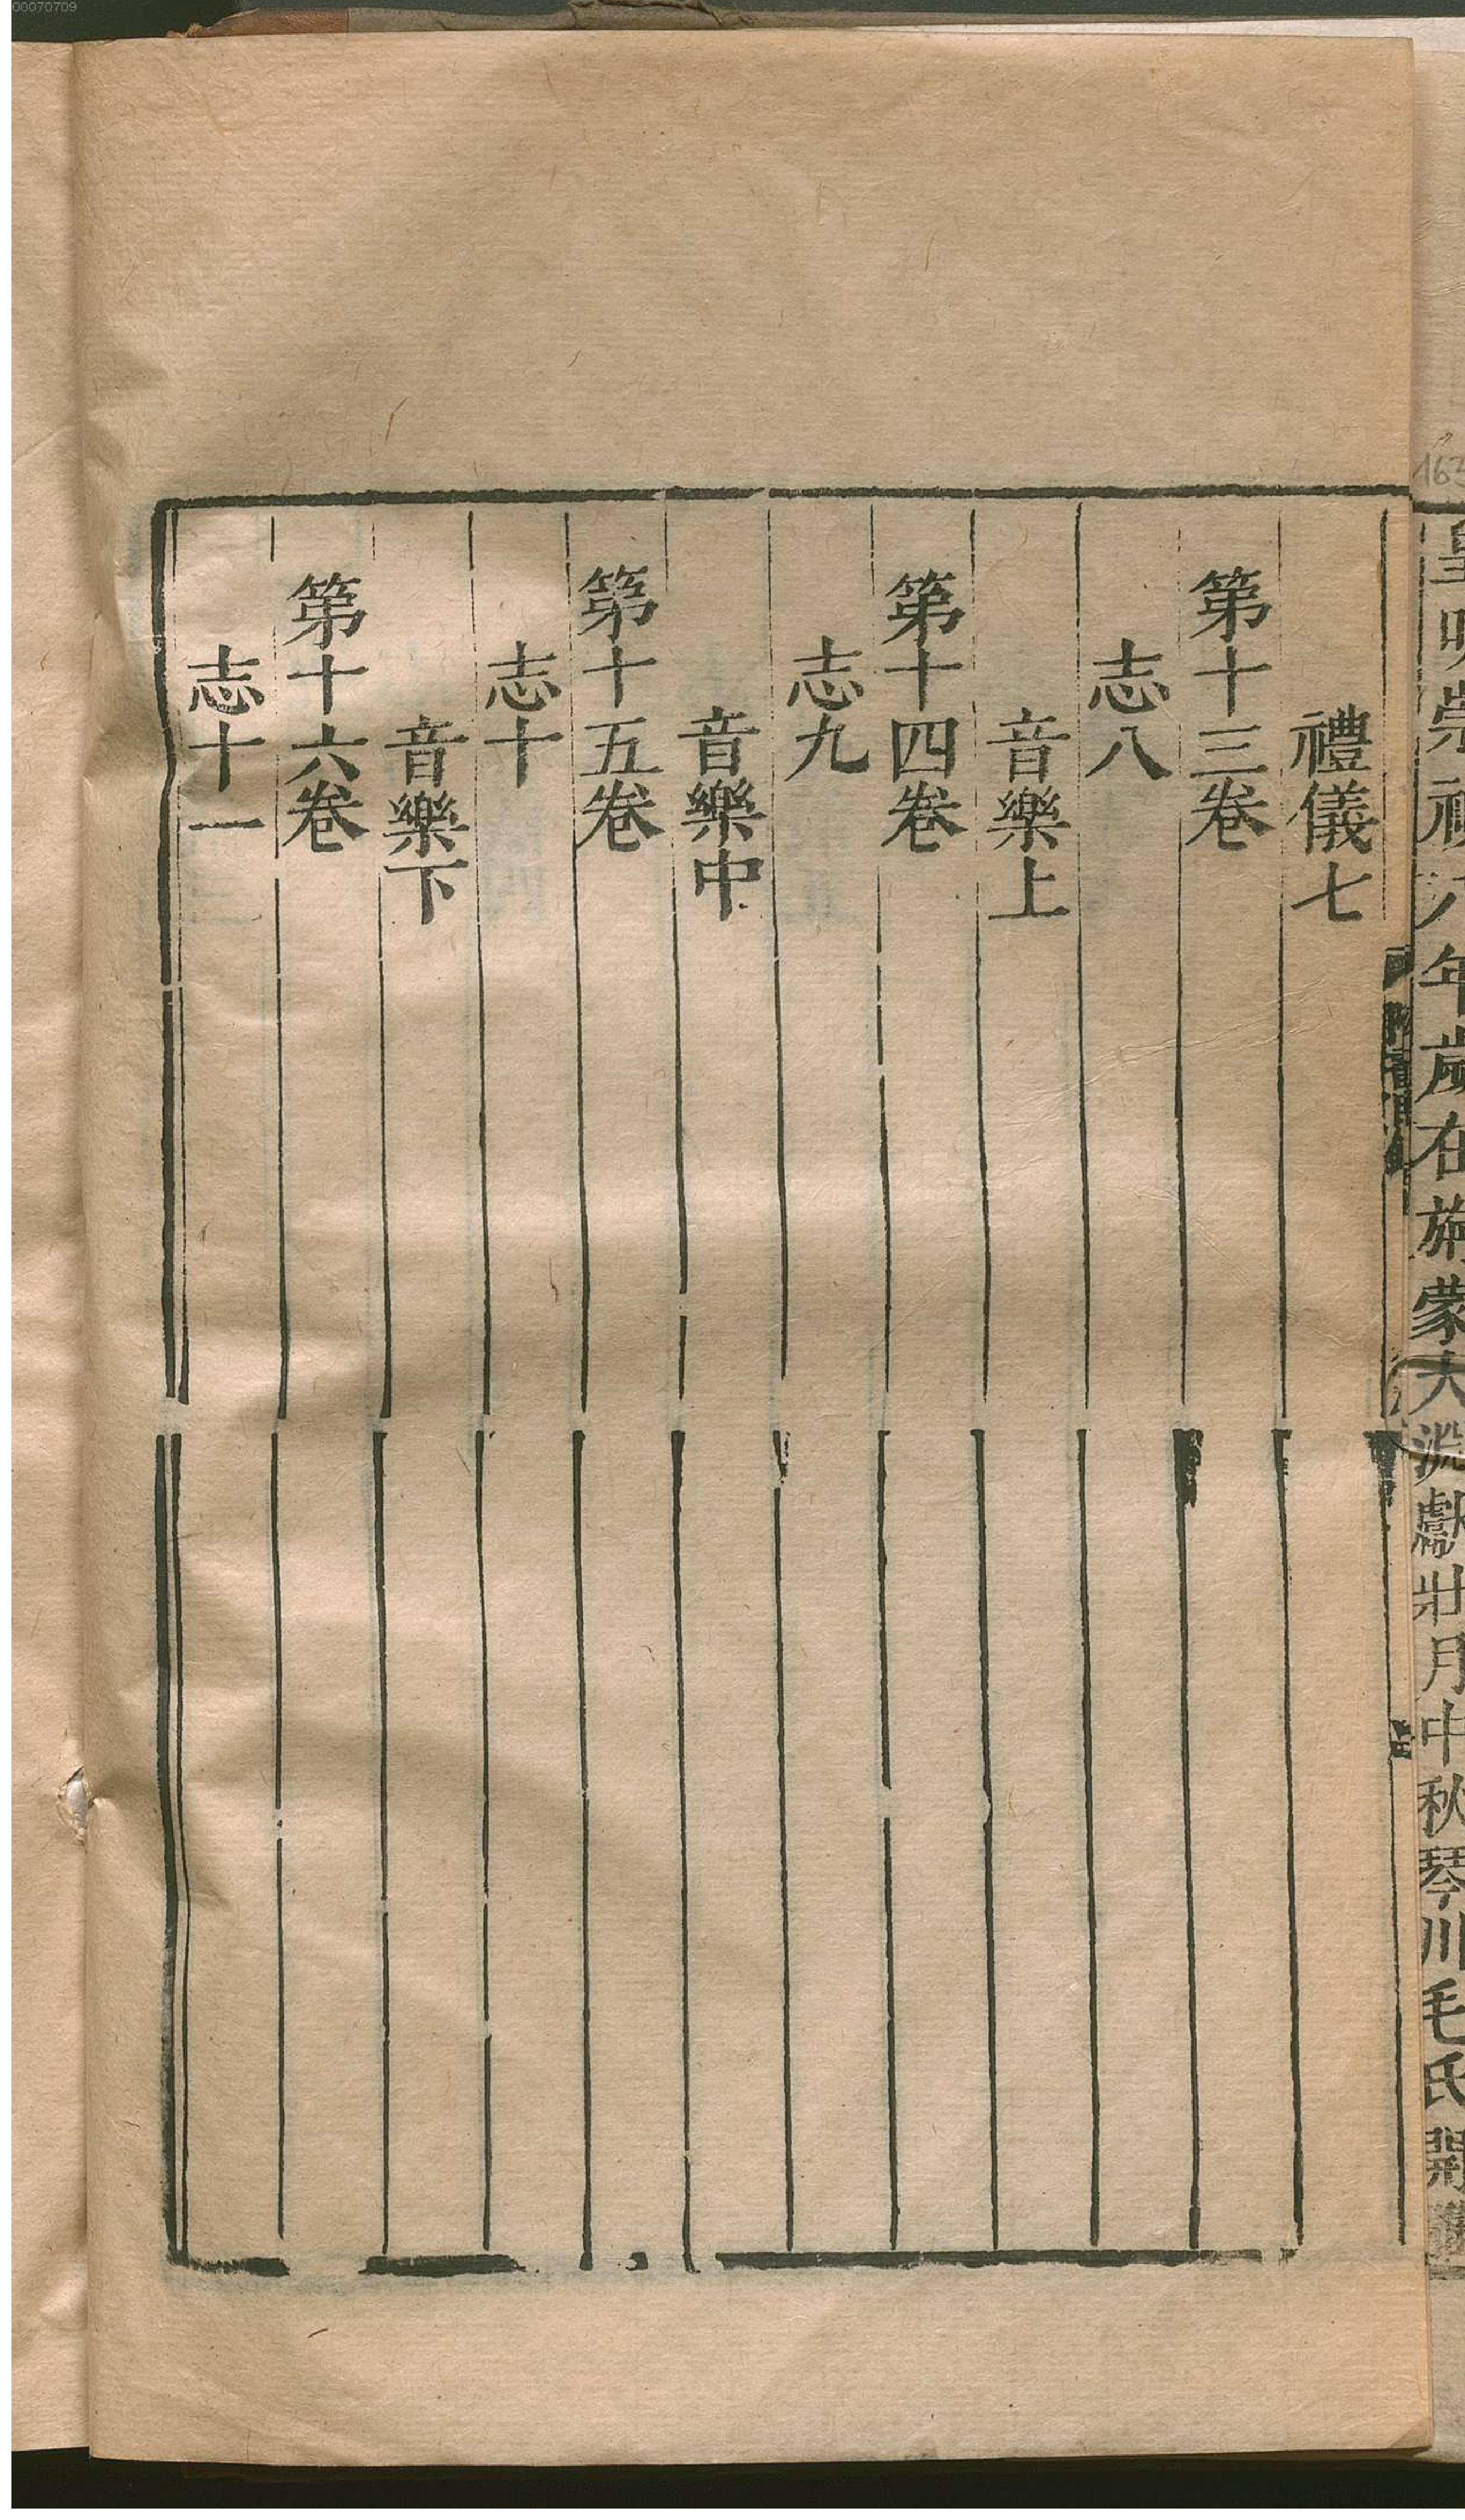 皇明崇禎八年歲在旃蒙大淵獻壯月中秋琴川毛氏開雕
禮儀七
第十三卷
志八
音樂上
第十四卷
志九
音樂中
第十五卷
志十
音樂下
第十六卷
志十一
00070709